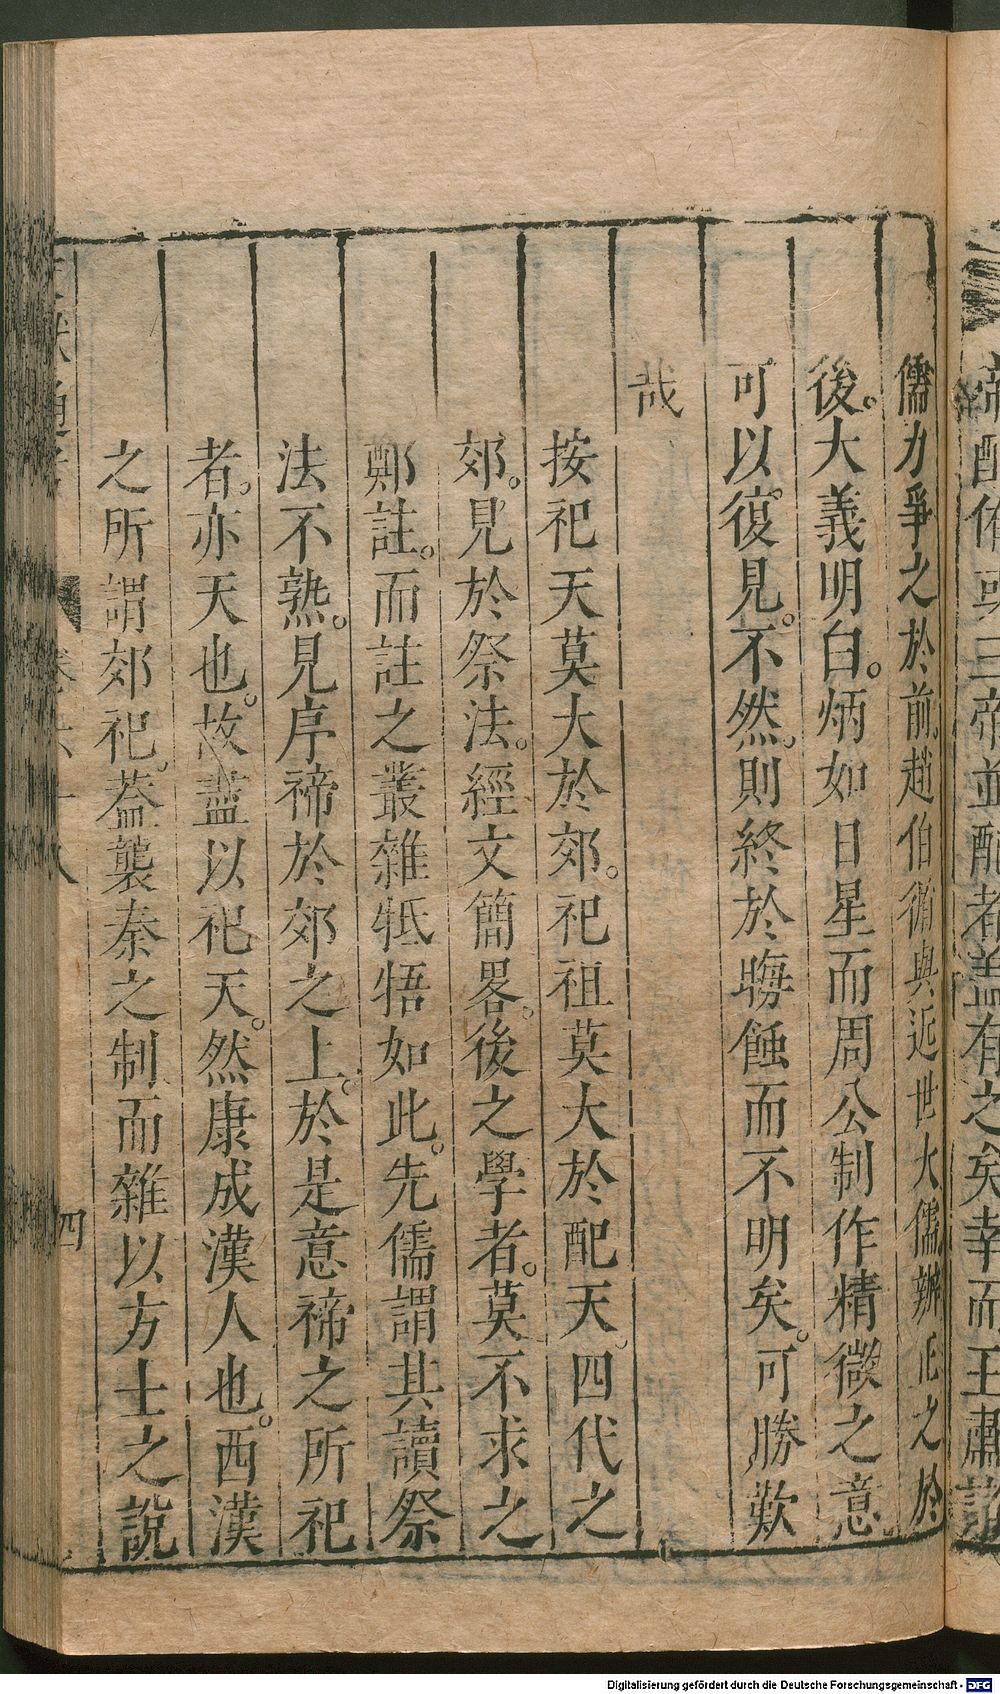 帝配侑或三帝並配者蓋有之矣幸而王肅諸
儒力爭之於前趙伯循與近世大儒辨正之於
後。大義明白。炳如日星而周公制作精微之意
可以復見。不然。則終於晦蝕而不明矣。可勝歎
哉
按祀天莫大於郊。祀祖莫大於配天。四代之
郊。見於祭法。經文簡畧。後之學者。莫不求之
鄭註。而註之叢雜牴牾如此。先儒謂其讀祭
法不熟。見序禘於郊之上。於是意禘之所祀
者。亦天也。故盡以祀天。然康成漢人也。西漢
之所謂郊祀。蓋襲秦之制而雜以方士之說
文獻通考
卷六十八
四
Digitalisierung gefördert durch die Deutsche Forschungsgemeinschaft - DFG